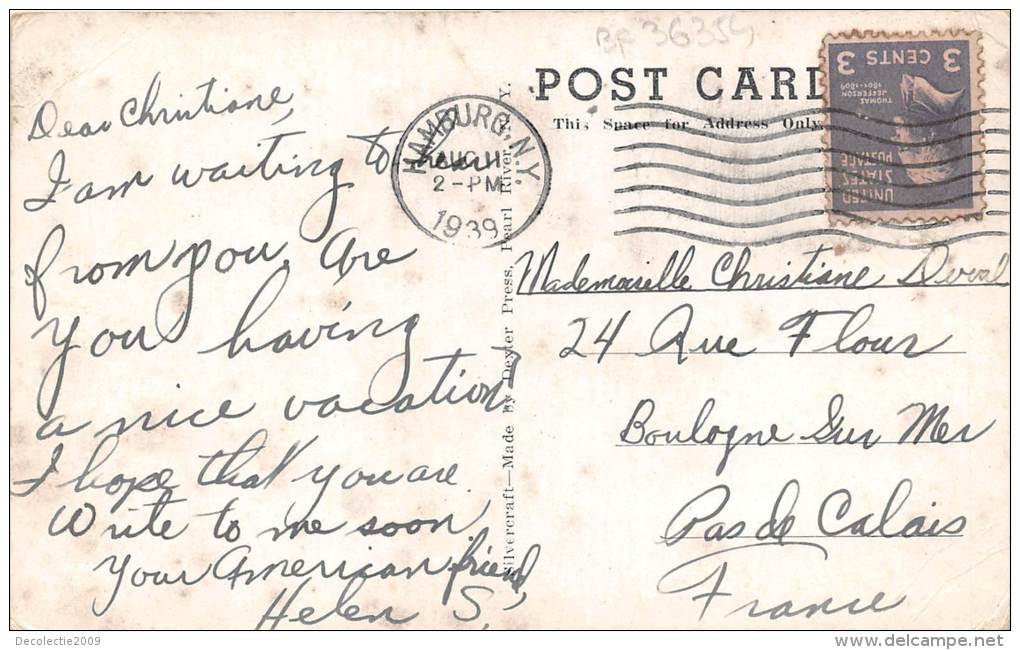 BF 36354
POST CARD
This Space for Address Only
3 CENTS 3
THOMAS
JEFFERSON
1801-1809
UNITED
STATES
POSTAGE
HAMBURG, N.Y.
AUG 11
2-PM
1939
Dear Christiane,
I am waiting to hear
from you. Are
you having
a nice vacation
I hope that you are
Write to me soon
Your American friend,
Helen S.
Silvercraft—Made by Dexter Press, Pearl River, N. Y.
Mademoiselle Christiane
24 Rue Flour
Boulogne Sur Mer
Pas de Calais
France
Decolectie2009
www.delcampe.net